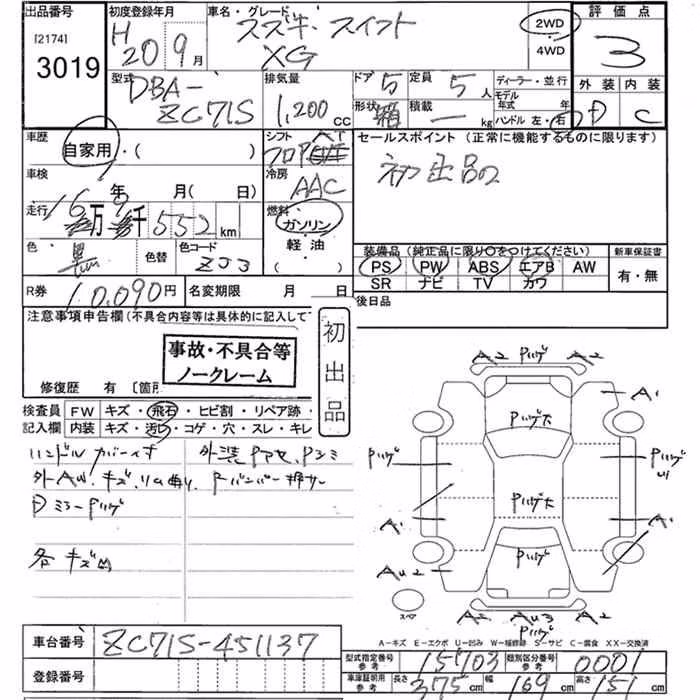 出品番号
[2174]
3019
初度登録年月
H20 9月
車名・グレード
スズキ スイフト
XG
2WD
4WD
評価点
3
外装 内装
D C
型式
DBA-
ZC71S
排気量
1,200 CC
ドア 5
定員 5人
形状 箱
積載 — kg
ディーラー・並行
モデル年式 年式
ハンドル 左・右
車歴
自家用・( )
シフト AT
フロア
車検
年 月( 日)
冷房
AAC
セールスポイント(正常に機能するものに限ります)
初出品の
走行 16万 9千 552 km
燃料
ガソリン
軽油・
( )
色
黒
色替
色コード
ZJ3
装備品(純正品に限り○をつけてください)
PS PW ABS エアB AW
SR ナビ TV カワ
新車保証書
有・無
R券 10,090円
名変期限 月 日
後日品
注意事項申告欄(不具合内容等は具体的に記入して
事故・不具合等
ノークレーム
初出品
修復歴 有 〔箇所
検査員 FW キズ・飛石・ヒビ割・リペア跡・
記入欄 内装 キズ・汚レ・コゲ・穴・スレ・キレ
ハンドル カバーイキ
外装 Pアセ、Pシミ
外AW、キズ、リム曲リ
Rバンパー押サ
Dミラー Pハゲ
各キズ凹
A2 Pハゲ A2
A1
Pハゲ大
Pハゲ
Pハゲ
Pハゲ大
A1
A1
Pハゲ
AU2
A2 AU3 A2
スペア
A-キズ E-エクボ U-凹み W-補修跡 S-サビ C-腐食 XX-交換済
車台番号 ZC71S-451137
型式指定番号 参考 15703
類別区分番号 参考 0001
登録番号
車庫証明用 参考 長さ 375cm 幅 169cm 高さ 151cm